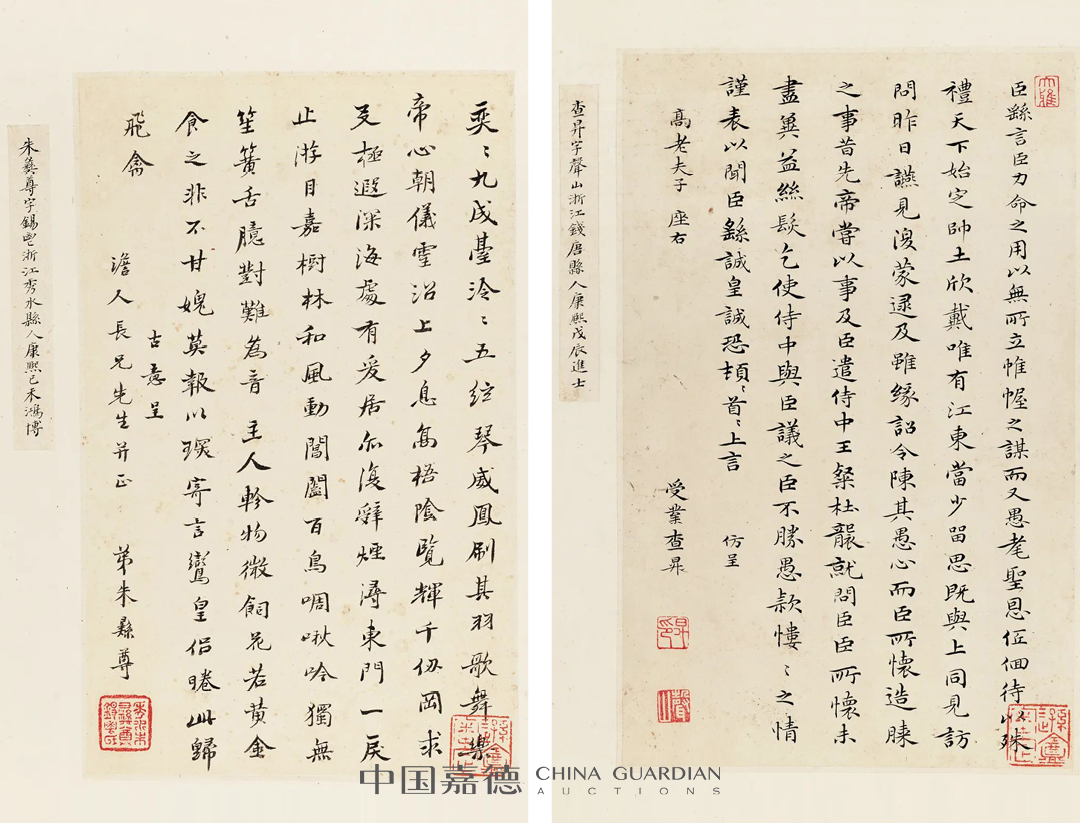 臣繇言臣力命之用以無所立帷幄之謀而又愚耄聖恩伍佪待以殊
禮天下始定帥土欣戴唯有江東當少留思既與上同見訪
問昨日讌見復蒙逮及雖緣詔令陳其愚心而臣所懷造膝
之事昔先帝嘗以事及臣遣侍中王粲杜襲就問臣臣所懷未
盡冀益絲髮乞使侍中與臣議之臣不勝愚款慺〻之情
謹表以聞臣繇誠皇誠恐頓〻首〻上言 仿呈
高老夫子 座右
受業查昇
查昇字聲山浙江錢唐縣人康熙戊辰進士
奕〻九成臺泠〻五弦琴威鳳刷其羽歌舞樂
帝心朝儀靈沼上夕息高梧陰覽輝千仞岡求
友極遐深海處有爰居亦復辟煙潯東門一戾
止游目嘉樹林和風動閶闔百鳥啁啾吟獨無
笙簧舌臆對難為音主人軫物微飼花若黃金
食之非不甘媿莫報以琛寄言鸞皇侶睠此歸
飛禽
古意呈
澹人長兄先生并正 弟朱彝尊
朱彝尊字錫鬯浙江秀水縣人康熙己未鴻博
中国嘉德 CHINA GUARDIAN
AUCTIONS